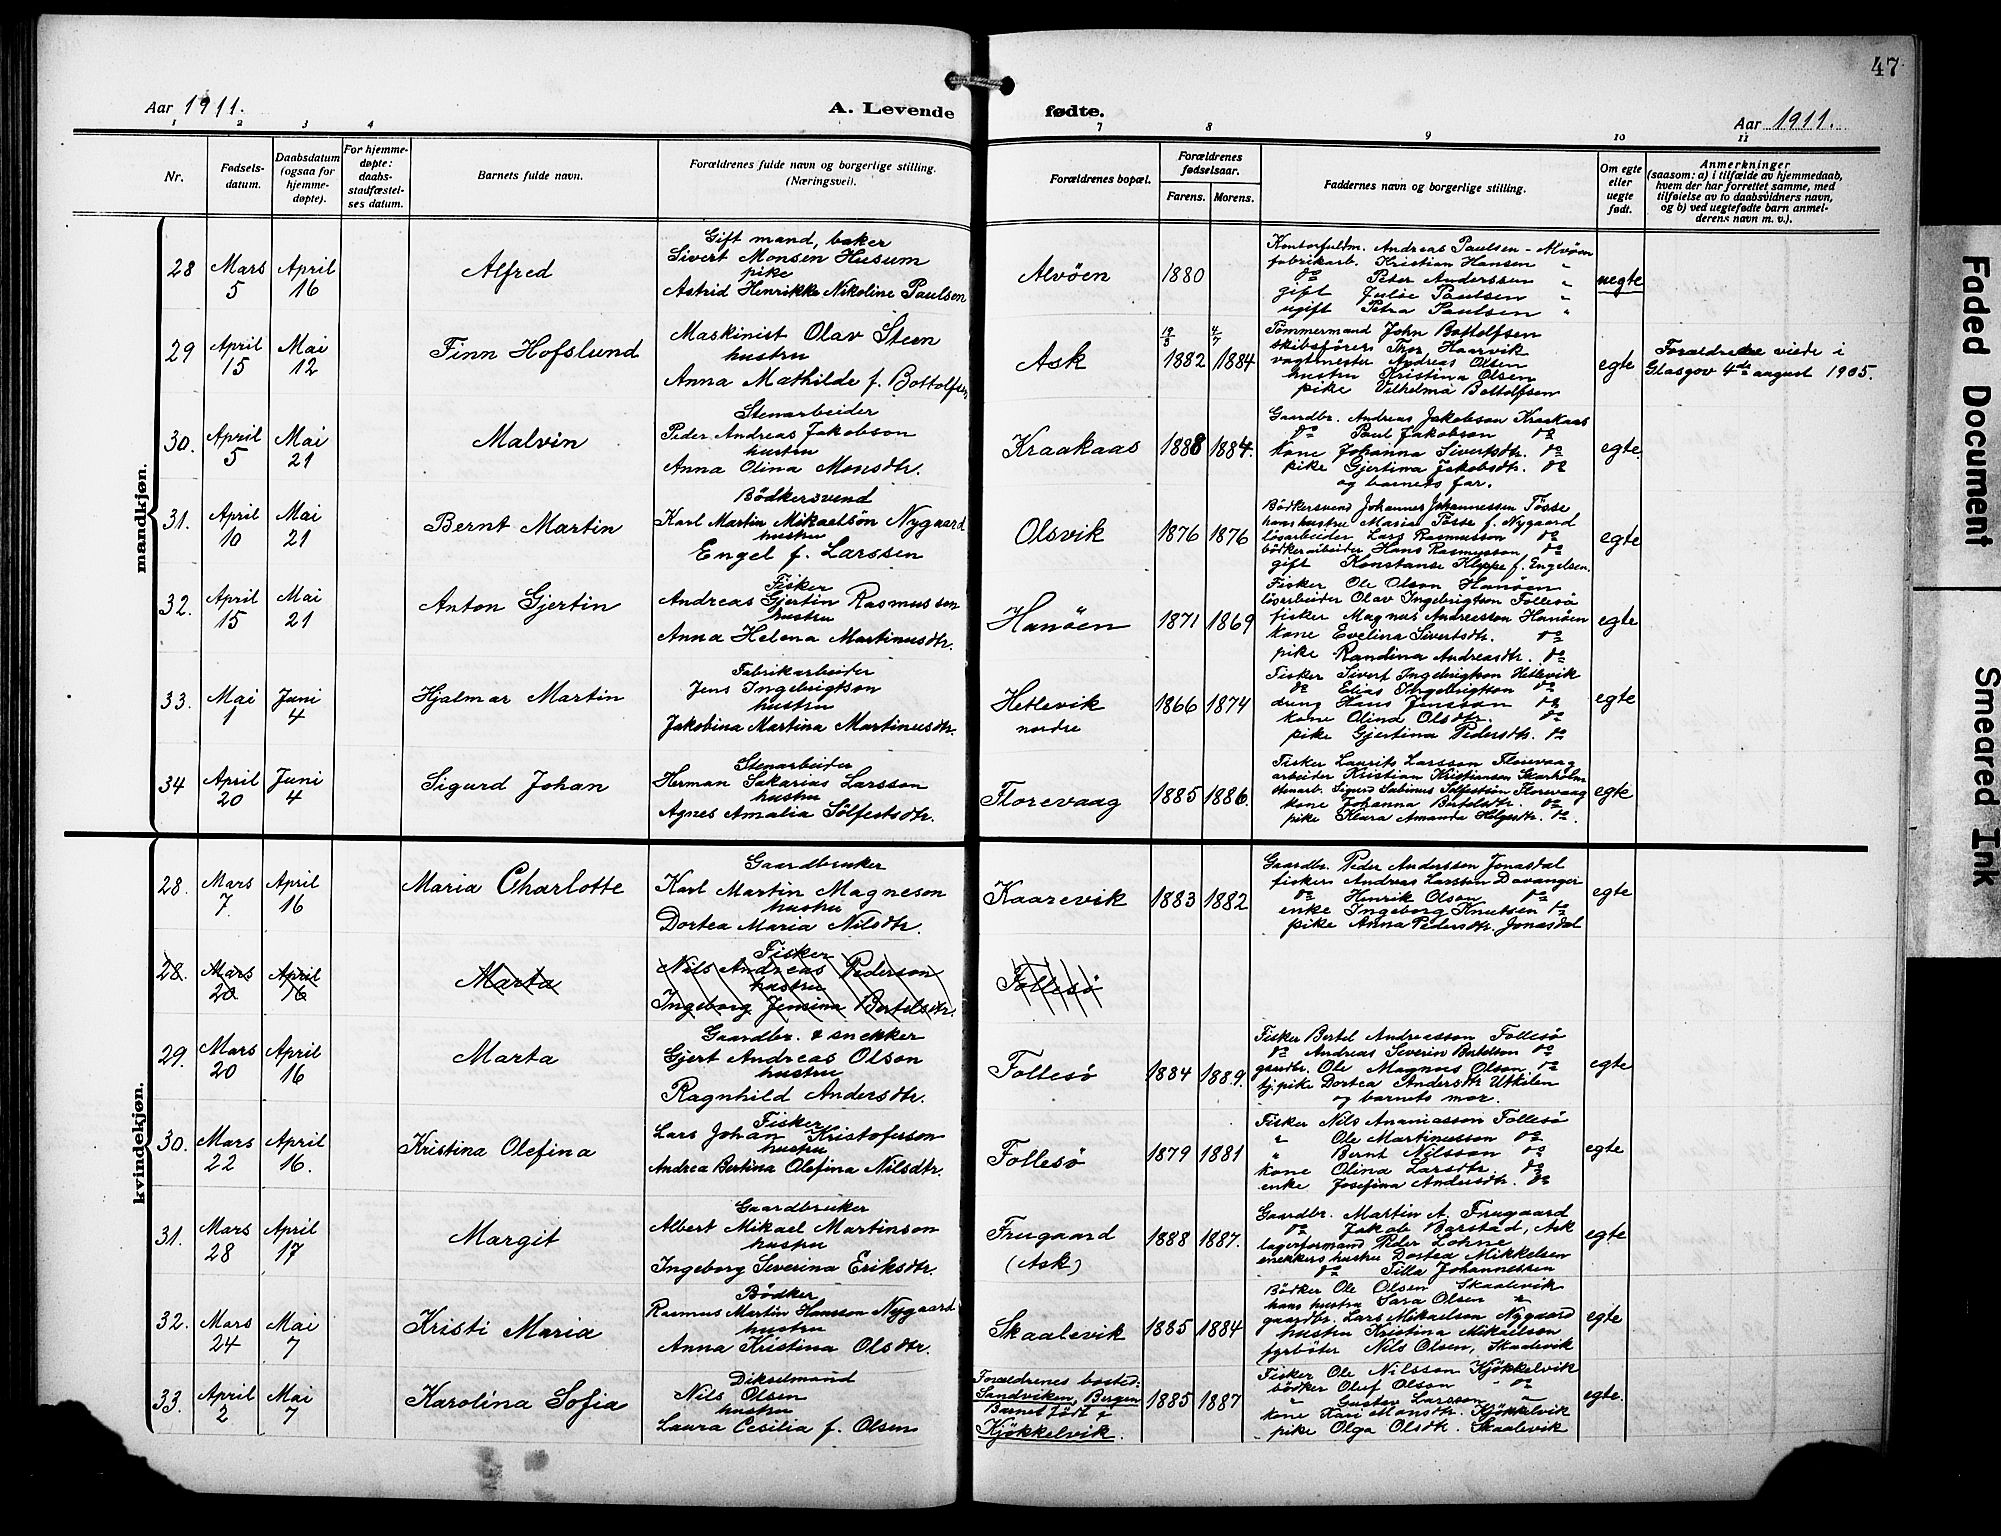 47
Aar 1911.
A. Levende fødte.
Aar 1911.
1 2 3 4 7 8 9 10 11
Nr.
Fødsels-
datum.
Daabsdatum
(ogsaa for
hjemme-
døpte).
For hjemme-
døpte:
daabs-
stadfæstel-
ses datum.
Barnets fulde navn.
Forældrenes fulde navn og borgerlige stilling.
(Næringsvei).
Forældrenes bopæl.
Forældrenes
fødselsaar.
Farens. Morens.
Faddernes navn og borgerlige stilling.
Om egte
eller
uegte
født.
Anmerkninger
(saasom: a) i tilfælde av hjemmedaab,
hvem der har forrettet samme, med
tilføielse av to daabsvidners navn,
og b) ved uegtefødte barn anmel-
derens navn m. v.).
mandkjøn.
28
Mars
5
April
16
Alfred
Gift mand, baker
Sivert Monsen Husum
pike
Astrid Henrikke Nikoline Paulsen
Alvöen
1880
Kontorfuldm. Andreas Paulsen - Alvöen
fabrikarb. Kristian Hansen "
do Peter Anderssen "
gift Julie Paulsen "
ugift Petra Paulsen "
uegte
29
April
15
Mai
12
Finn Hofslund
Maskinist Olav Steen
hustru
Anna Mathilde f. Bottolfsen
Ask
19/3 1882
4/7 1884
Tömmermand John Bottolfsen
skibsförer Thor Haarvik
vagtmester Andreas Olsen
hustru Kristina Olsen
pike Vilhelma Bottolfsen
egte
Forældrene viede i
Glasgov 4de august 1905.
30.
April
5
Mai
21
Malvin
Stenarbeider
Peder Andreas Jakobson
hustru
Anna Olina Monsdtr.
Kraakaas
1888 1884.
Gaardbr. Andreas Jakobson Kraakaas
do Paul Jakobson do
kone Johanna Sivertsdtr. do
pike Gjertina Jakobsdtr. do
og barnets far.
egte
31.
April
10
Mai
21
Bernt Martin
Bödkersvend
Karl Martin Mikaelsön Nygaard
hustru
Engel f. Larssen
Olsvik
1876 1876
Bödkersvend Johannes Johannessen Tösse
hans hustru Maria Tösse f. Nygaard
lösarbeider Lars Rasmusson do
bödkerarbeider Hans Rasmusson do
gift Konstanse Kleppe f. Engelsen.
egte
32.
April
15
Mai
21
Anton Gjertin
Fisker
Andreas Gjertin Rasmusson
hustru
Anna Helena Martinusdtr.
Hanöen
1871 1869
Fisker Ole Olson Hanöen
lösarbeider Olav Ingebrigtson Follesö
fisker Magnus Andreasson Hanöen
kone Evelina Sivertsdtr. do
pike Randina Andreasdtr. do
egte
33.
Mai
1
Juni
4
Hjalmar Martin
Fabrikarbeider
Jens Ingebrigtson
hustru
Jakobina Martina Martinusdtr.
Hetlevik
nordre
1866 1874
Fisker Sivert Ingebrigtson Hetlevik
do Elias Ingebrigtson do
dreng Hans Jensson do
kone Olina Olsdtr. do
pike Gjertina Pedersdtr. do
egte
34
April
20
Juni
4
Sigurd Johan
Stenarbeider
Herman Sakarias Larsson
hustru
Agnes Amalia Sölfestsdtr.
Florevaag
1885 1886.
Fisker Laurits Larsson Florevaag
arbeider Kristian Kristianson Skarholm
stenarb. Sigurd Sabinus Sölfestson Florevaag
kone Johanna Bertelsdtr. do
pike Klara Amanda Helgesdtr. do.
egte
kvindekjøn.
28.
Mars
7
April
16
Maria Charlotte
Gaardbruker
Karl Martin Magneson
hustru
Dortea Maria Nilsdtr.
Kaarevik
1883 1882
Gaardbr. Peder Andersson Jonasdal
fiskers Andreas Larsson Davanger
do Henrik Olson do
enke Ingeborg Knutsen do
pike Anna Pedersdtr. Jonasdal
egte
28.
Mars
20
April
16
Marta
Fisker
Nils Andreas Pederson
hustru
Ingeborg Jensina Bertelsdtr.
Follesö
29.
Mars
20
April
16
Marta
Gaardbr. & snekker
Gjert Andreas Olson
hustru
Ragnhild Andersdtr.
Follesö
1884 1889.
Fisker Bertel Andreasson Follesö
do Andreas Severin Bertelson do
gaardbr. Ole Magnus Olson do
tj.pike Dortea Andersdtr Utkilen
og barnets mor.
egte
30.
Mars
22
April
16.
Kristina Olefina
Fisker
Lars Johan Kristoferson
hustru
Andrea Bertina Olefina Nilsdtr.
Follesö
1879 1881
Fisker Nils Ananiasson Follesö
" Ole Martinusson do
" Bernt Nilsson do
kone Olina Larsdtr. do
enke Josefina Andersdtr. do
egte
31.
Mars
28
April
17
Margit
Gaardbruker
Albert Mikael Martinson
hustru
Ingeborg Severina Eriksdtr.
Frugaard
(Ask)
1888 1887.
Gaardbr. Martin A. Frugaard
do Jakob Barstad, Ask
lagerformand Peder Lohne
snekkers hustru Dortea Mikkelsen
do Tilla Johannessen
egte
32.
Mars
24
Mai
7
Kristi Maria
Bödker
Rasmus Martin Hansson Nygaard
hustru
Anna Kristina Olsdtr.
Skaalevik
1885 1884
Bödker Ole Olsen Skaalevik
hans hustru Sara Olsen "
gaardbr. Lars Mikaelson Nygaard
hustru Kristina Mikaelson
fyrböter Nils Olsen, Skaalevik
egte
33.
April
2
Mai
7
Karolina Sofia
Dikselmand
Nils Olsen
hustru
Laura Cesilia f. Olsen
Forældrenes bosted:
Sandviken, Bergen
Barnet født i
Kjøkkelvik.
1885 1887
Fisker Ole Nilsson Kjøkkelvik
bödker Oluf Olson do
" Gustav Larsson "
kone Kari Monsdtr. Kjøkkelvik
pike Olga Olsdtr. Skaalevik
egte.
Faded Document
Smeared Ink